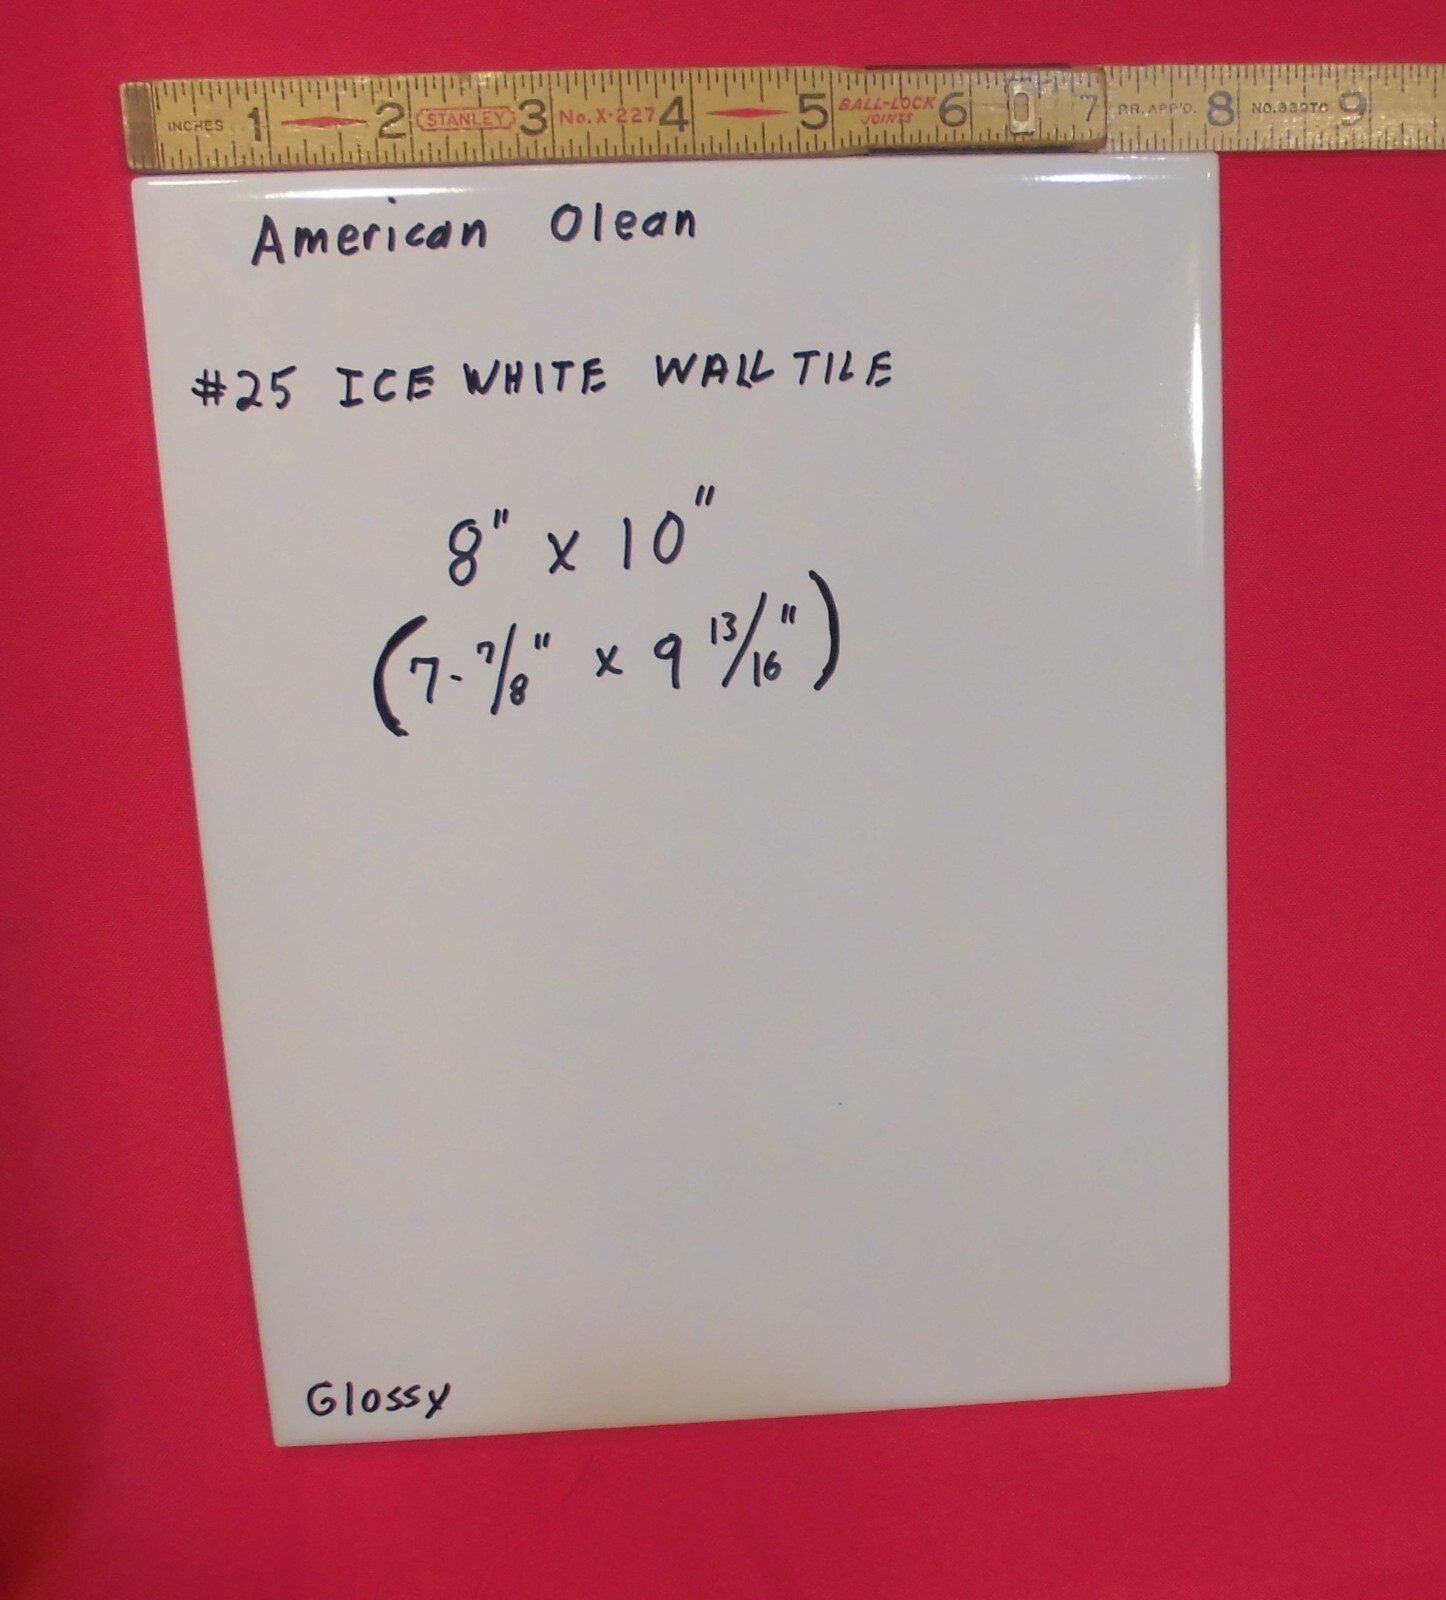 INCHES 1 2 STANLEY 3 No. X-227 4 5 BALL-LOCK JOINTS 6 7 R.R. APP'D. 8 9
American Olean
#25 ICE WHITE WALL TILE
8" x 10"
(7-7/8" x 9 13/16")
Glossy